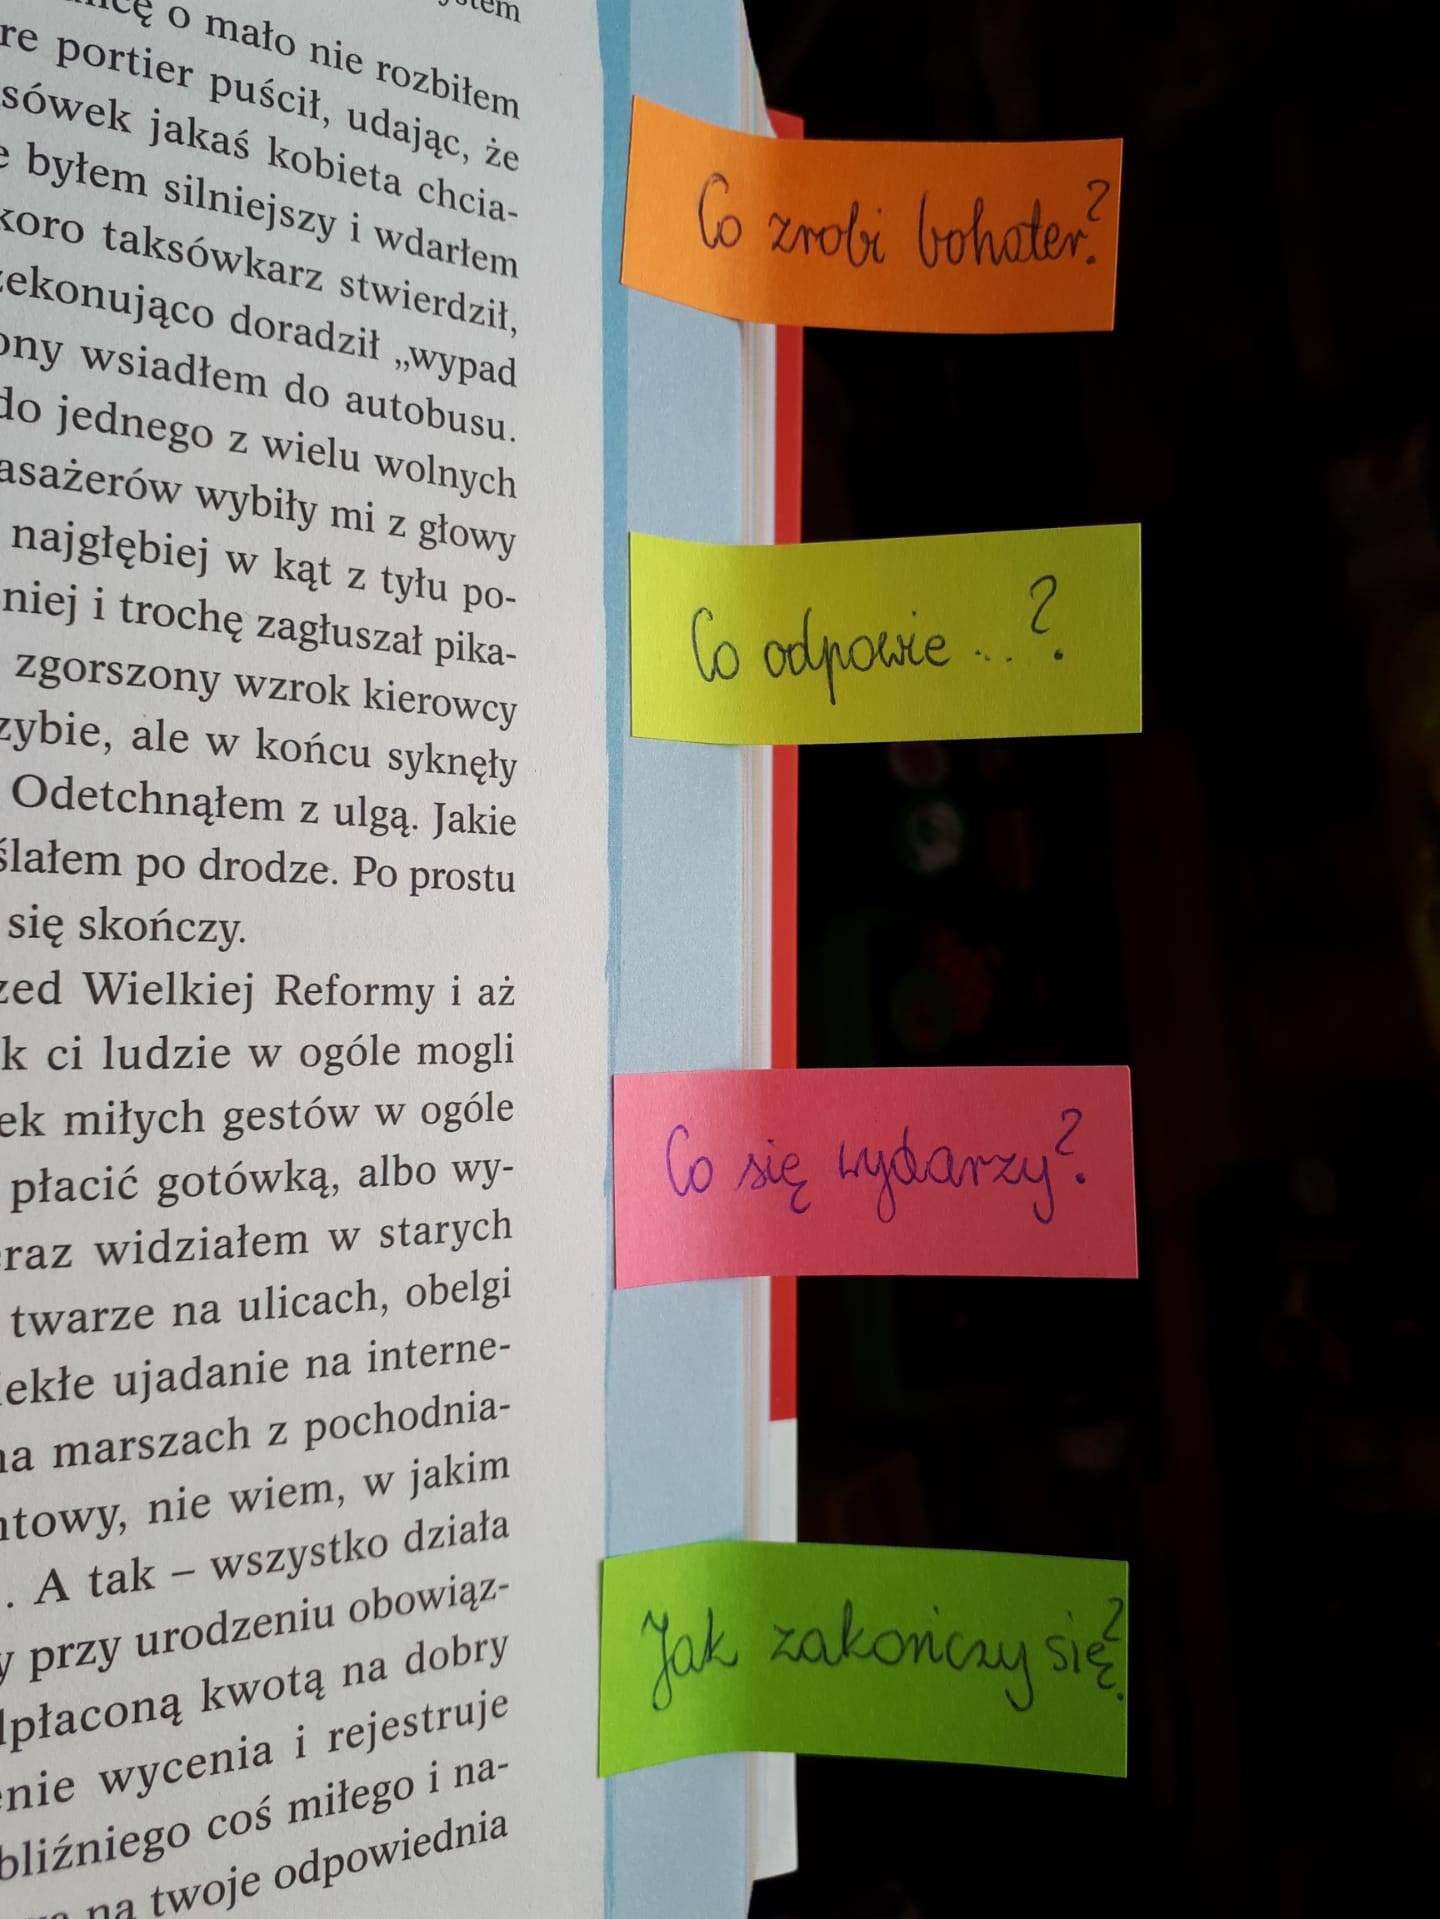 o mało nie rozbiłem
portier puścił, udając, że
jakaś kobieta chcia-
byłem silniejszy i wdarłem
taksówkarz stwierdził,
doradził „wypad
wsiadłem do autobusu.
do jednego z wielu wolnych
wybiły mi z głowy
najgłębiej w kąt z tyłu po-
i trochę zagłuszał pika-
zgorszony wzrok kierowcy
ale w końcu syknęły
Odetchnąłem z ulgą. Jakie
po drodze. Po prostu
się skończy.
Wielkiej Reformy i aż
ci ludzie w ogóle mogli
miłych gestów w ogóle
płacić gotówką, albo wy-
widziałem w starych
twarze na ulicach, obelgi
ujadanie na interne-
marszach z pochodnia-
nie wiem, w jakim
. A tak – wszystko działa
przy urodzeniu obowiąz-
kwotą na dobry
wycenia i rejestruje
bliźniego coś miłego i na-
na twoje odpowiednia
Co zrobi bohater?
Co odpowie ...?
Co się wydarzy?
Jak zakończy się?